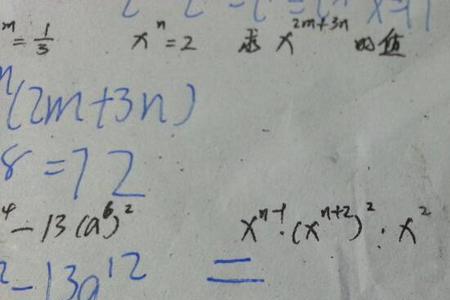 m = 1/3 xⁿ = 2 求 x^{2m+3n} 的值
n(2m+3n)
8 = 72
4 - 13(a⁶)² x^{n-1}·(x^{n+2})²·x²
2 - 13a¹² =